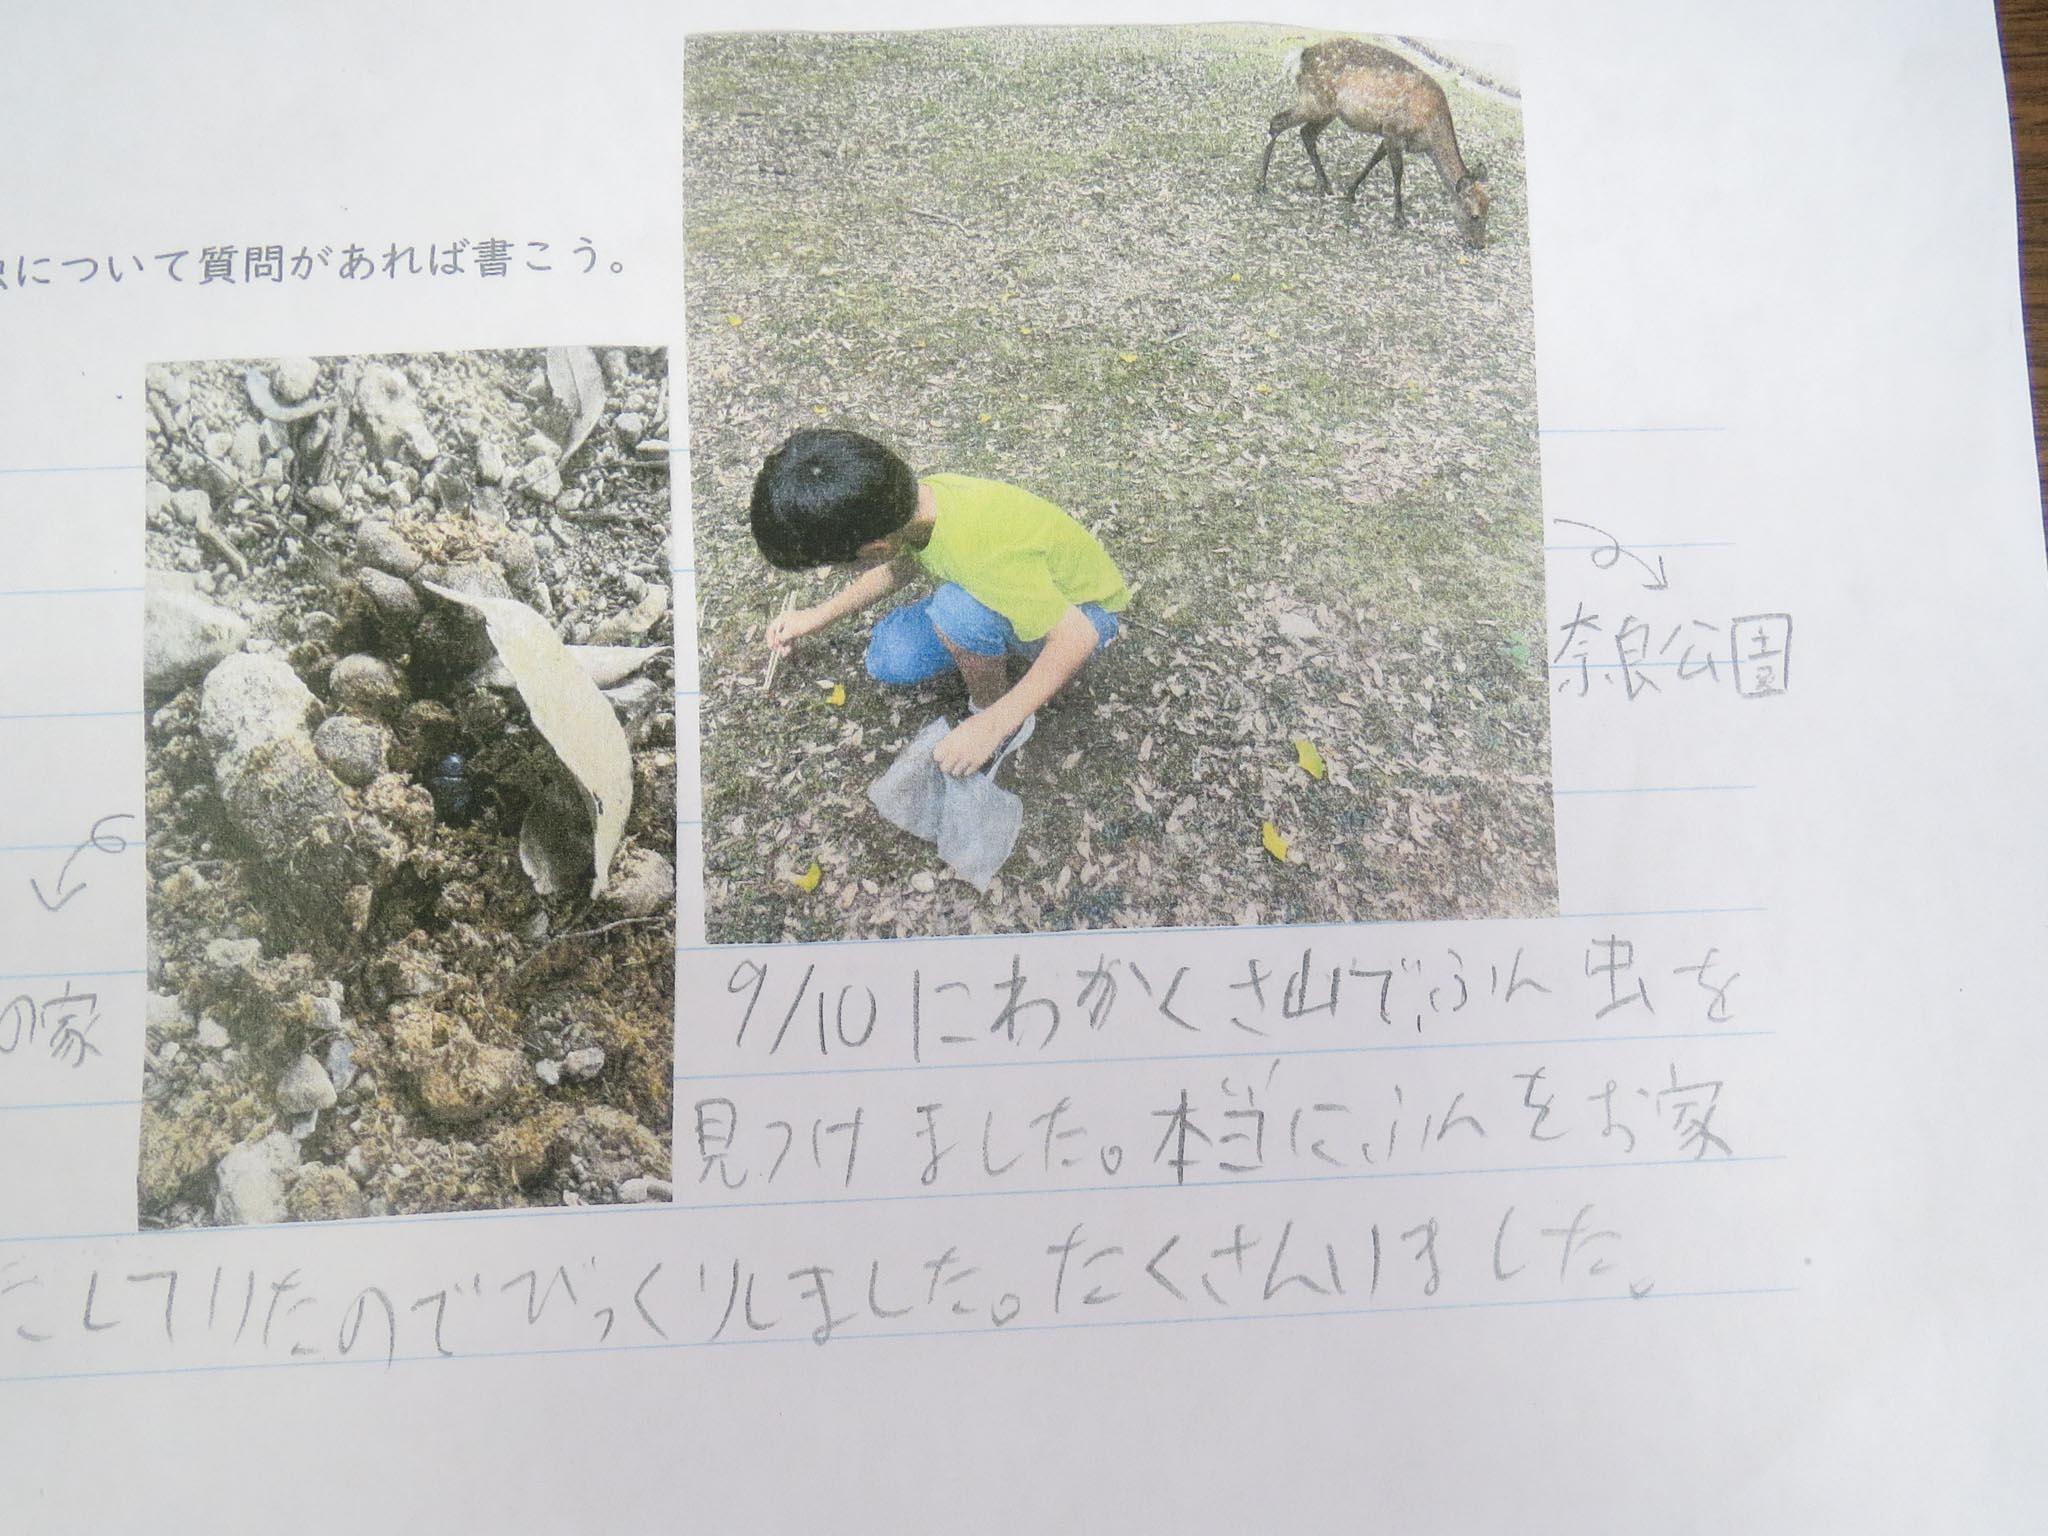 について質問があれば書こう。
奈良公園
の家
9/10にわかくさ山でふん虫を
見つけました。本当にふんをお家
にしていたのでびっくりしました。たくさんいました。